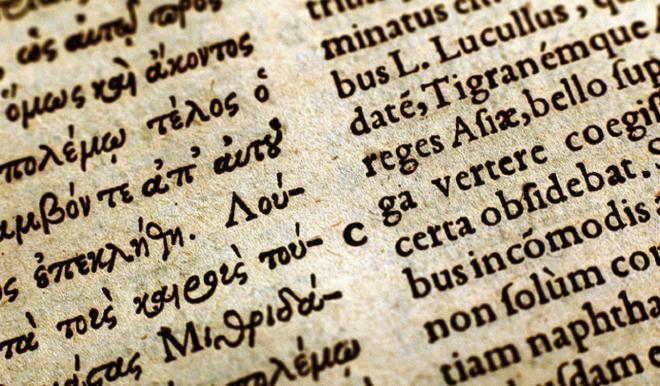 ὡς αὐτοῦ πρὸς
ὅμως καὶ ἄκοντος
πολέμῳ τέλος ὁ
τε ἀπ' αὐτοῦ
ἐπεκλήθη. Λού-
τοὺς τού-
Μιθριδά-
πολέμῳ
minatus
bus L. Lucullus,
daté, Tigranémque
reges Aſiæ, bello ſup
C
ga vertere coegiſ
certa obſidebat.
bus incómodis
non ſolùm con
tiam naphtha